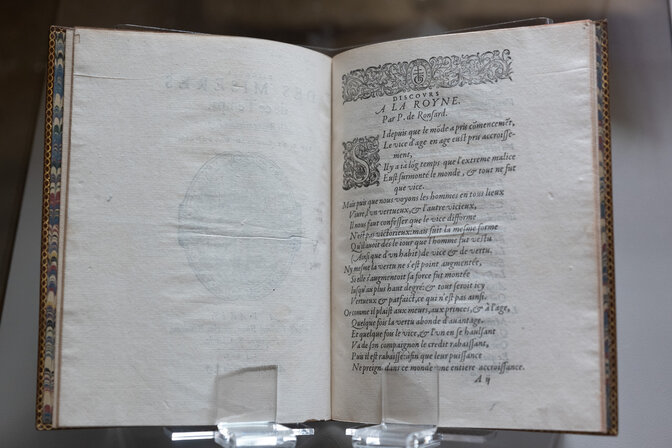 DISCOVRS
A LA ROYNE.
Par P. de Ronsard.
SI depuis que le mõde a pris cõmencemẽt,
Le vice d'age en age eust pris accroisse-
ment,
Il y a ia lõg temps que l'extreme malice
Eust surmonté le monde, & tout ne fut
que vice.
Mais puis que nous voyons les hommes en tous lieux
Viure, l'vn vertueux, & l'autre vicieux,
Il nous faut confesser que le vice difforme
N'est pas victorieux: mais suit la mesme forme
Qu'il auoit dés le iour que l'homme fut vestu
(Ainsi que d'vn habit) de vice & de vertu.
Ny mesme la vertu ne s'est point augmentée,
Si elle s'augmentoit sa force fut montée
Iusqu'au plus haut degré: & tout seroit icy
Vertueux & parfaict, ce qui n'est pas ainsi.
Or comme il plaist aux meurs, aux princes, & à l'age,
Quelque fois la vertu abonde d'auãtage.
Et quelque fois le vice, & l'vn en se haulsant
Va de son compaignon le credit rabaissant,
Puis il est rabaissé: afin que leur puissance
Ne preign' dans ce monde vne entiere accroissance.
A ij